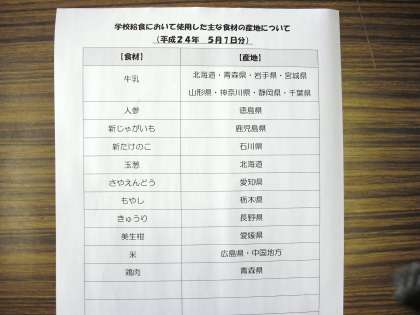 学校給食において使用した主な食材の産地について
（平成２４年　５月１日分）
【食材】　【産地】
牛乳　北海道・青森県・岩手県・宮城県
山形県・神奈川県・静岡県・千葉県
人参　徳島県
新じゃがいも　鹿児島県
新たけのこ　石川県
玉葱　北海道
さやえんどう　愛知県
もやし　栃木県
きゅうり　長野県
美生柑　愛媛県
米　広島県・中国地方
鶏肉　青森県